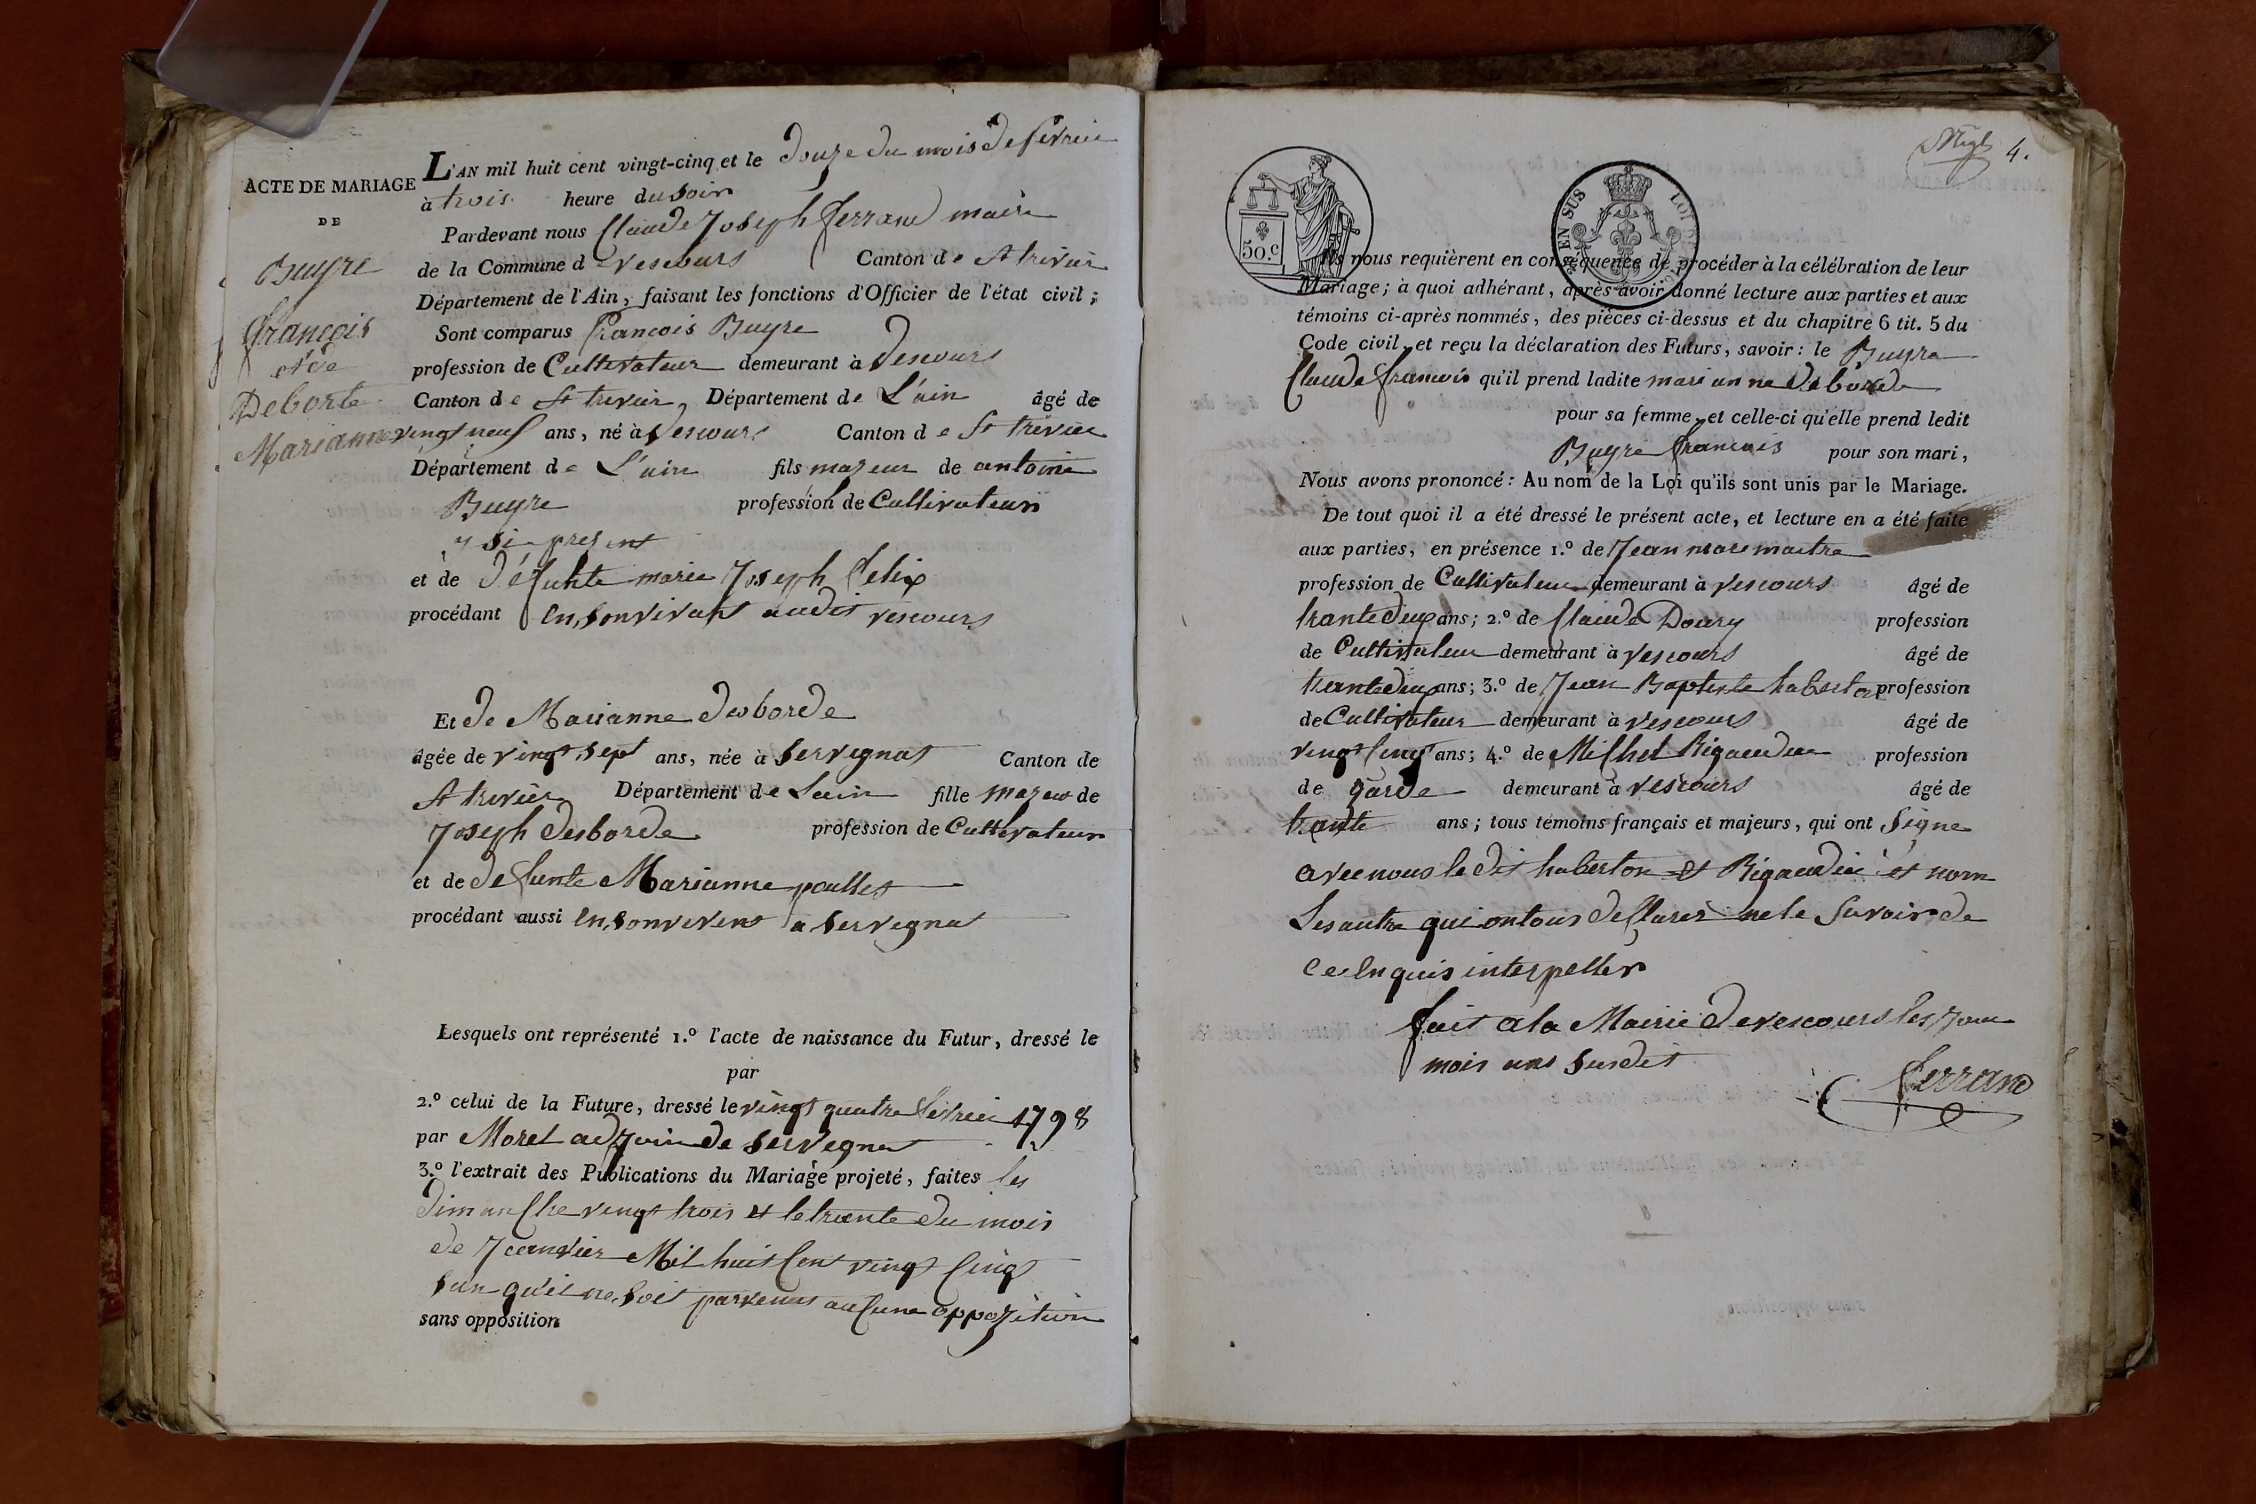 ACTE DE MARIAGE
DE
Buyre
françois
et de
Deborte
Marianne
L'AN mil huit cent vingt-cinq et le douze du mois de fevrier
à trois heure du soir
Pardevant nous Claude Joseph ferrand maire
de la Commune de vescours Canton de St trivier
Département de l'Ain, faisant les fonctions d'Officier de l'état civil ;
Sont comparus francois Buyre
profession de Cultivateur demeurant à vescours
Canton de St trivier, Département de L'ain âgé de
vingt neuf ans, né à vescours Canton de St trivier
Département de L'ain fils majeur de antoine
Buyre profession de Cultivateur
y si present
et de défunte marie Joseph felix
procédant en son vivant audit vescours
Et de Marianne desborde
âgée de vingt sept ans, née à Servegnat Canton de
St trivier Département de Lain fille majeur de
Joseph desborde profession de Cultivateur
et de defunte Marianne poullet
procédant aussi en son vivent a Servegnat
Lesquels ont représenté 1.º l'acte de naissance du Futur, dressé le
par
2.º celui de la Future, dressé le vingt quatre fevrier 1798
par Morel adjoin de Servegnat
3.º l'extrait des Publications du Mariage projeté, faites les
dimanche vingt trois et le trente du mois
de Jeanvier Mil huit Cent vingt Cinq
san qu'il ne soit parvenus aucune oppozition
sans opposition
4.
50.C
EN SUS
LOI
Ils nous requièrent en conséquence de procéder à la célébration de leur
Mariage ; à quoi adhérant, après avoir donné lecture aux parties et aux
témoins ci-après nommés, des pièces ci-dessus et du chapitre 6 tit. 5 du
Code civil, et reçu la déclaration des Futurs, savoir : le Buyre
Claude francois qu'il prend ladite marianne deborde
pour sa femme, et celle-ci qu'elle prend ledit
Buyre francois pour son mari,
Nous avons prononcé : Au nom de la Loi qu'ils sont unis par le Mariage.
De tout quoi il a été dressé le présent acte, et lecture en a été faite
aux parties, en présence 1.º de Jean marc maitre
profession de Cultivateur demeurant à vescours âgé de
trante deux ans ; 2.º de Claude Doury profession
de Cultivateur demeurant à vescours âgé de
trante deux ans ; 3.º de Jean Baptiste haberton profession
de Cultivateur demeurant à vescours âgé de
vingt Cinq ans ; 4.º de Michel Rigaudier profession
de garde demeurant à vescours âgé de
trante ans ; tous témoins français et majeurs, qui ont signe
avec nous le dit haberton et Rigaudier et nom
les autre qui on tous declarer ne le savoir de
ce enquis interpeller
fait a la Mairie de vescours les jour
mois ans susdit
ferrand